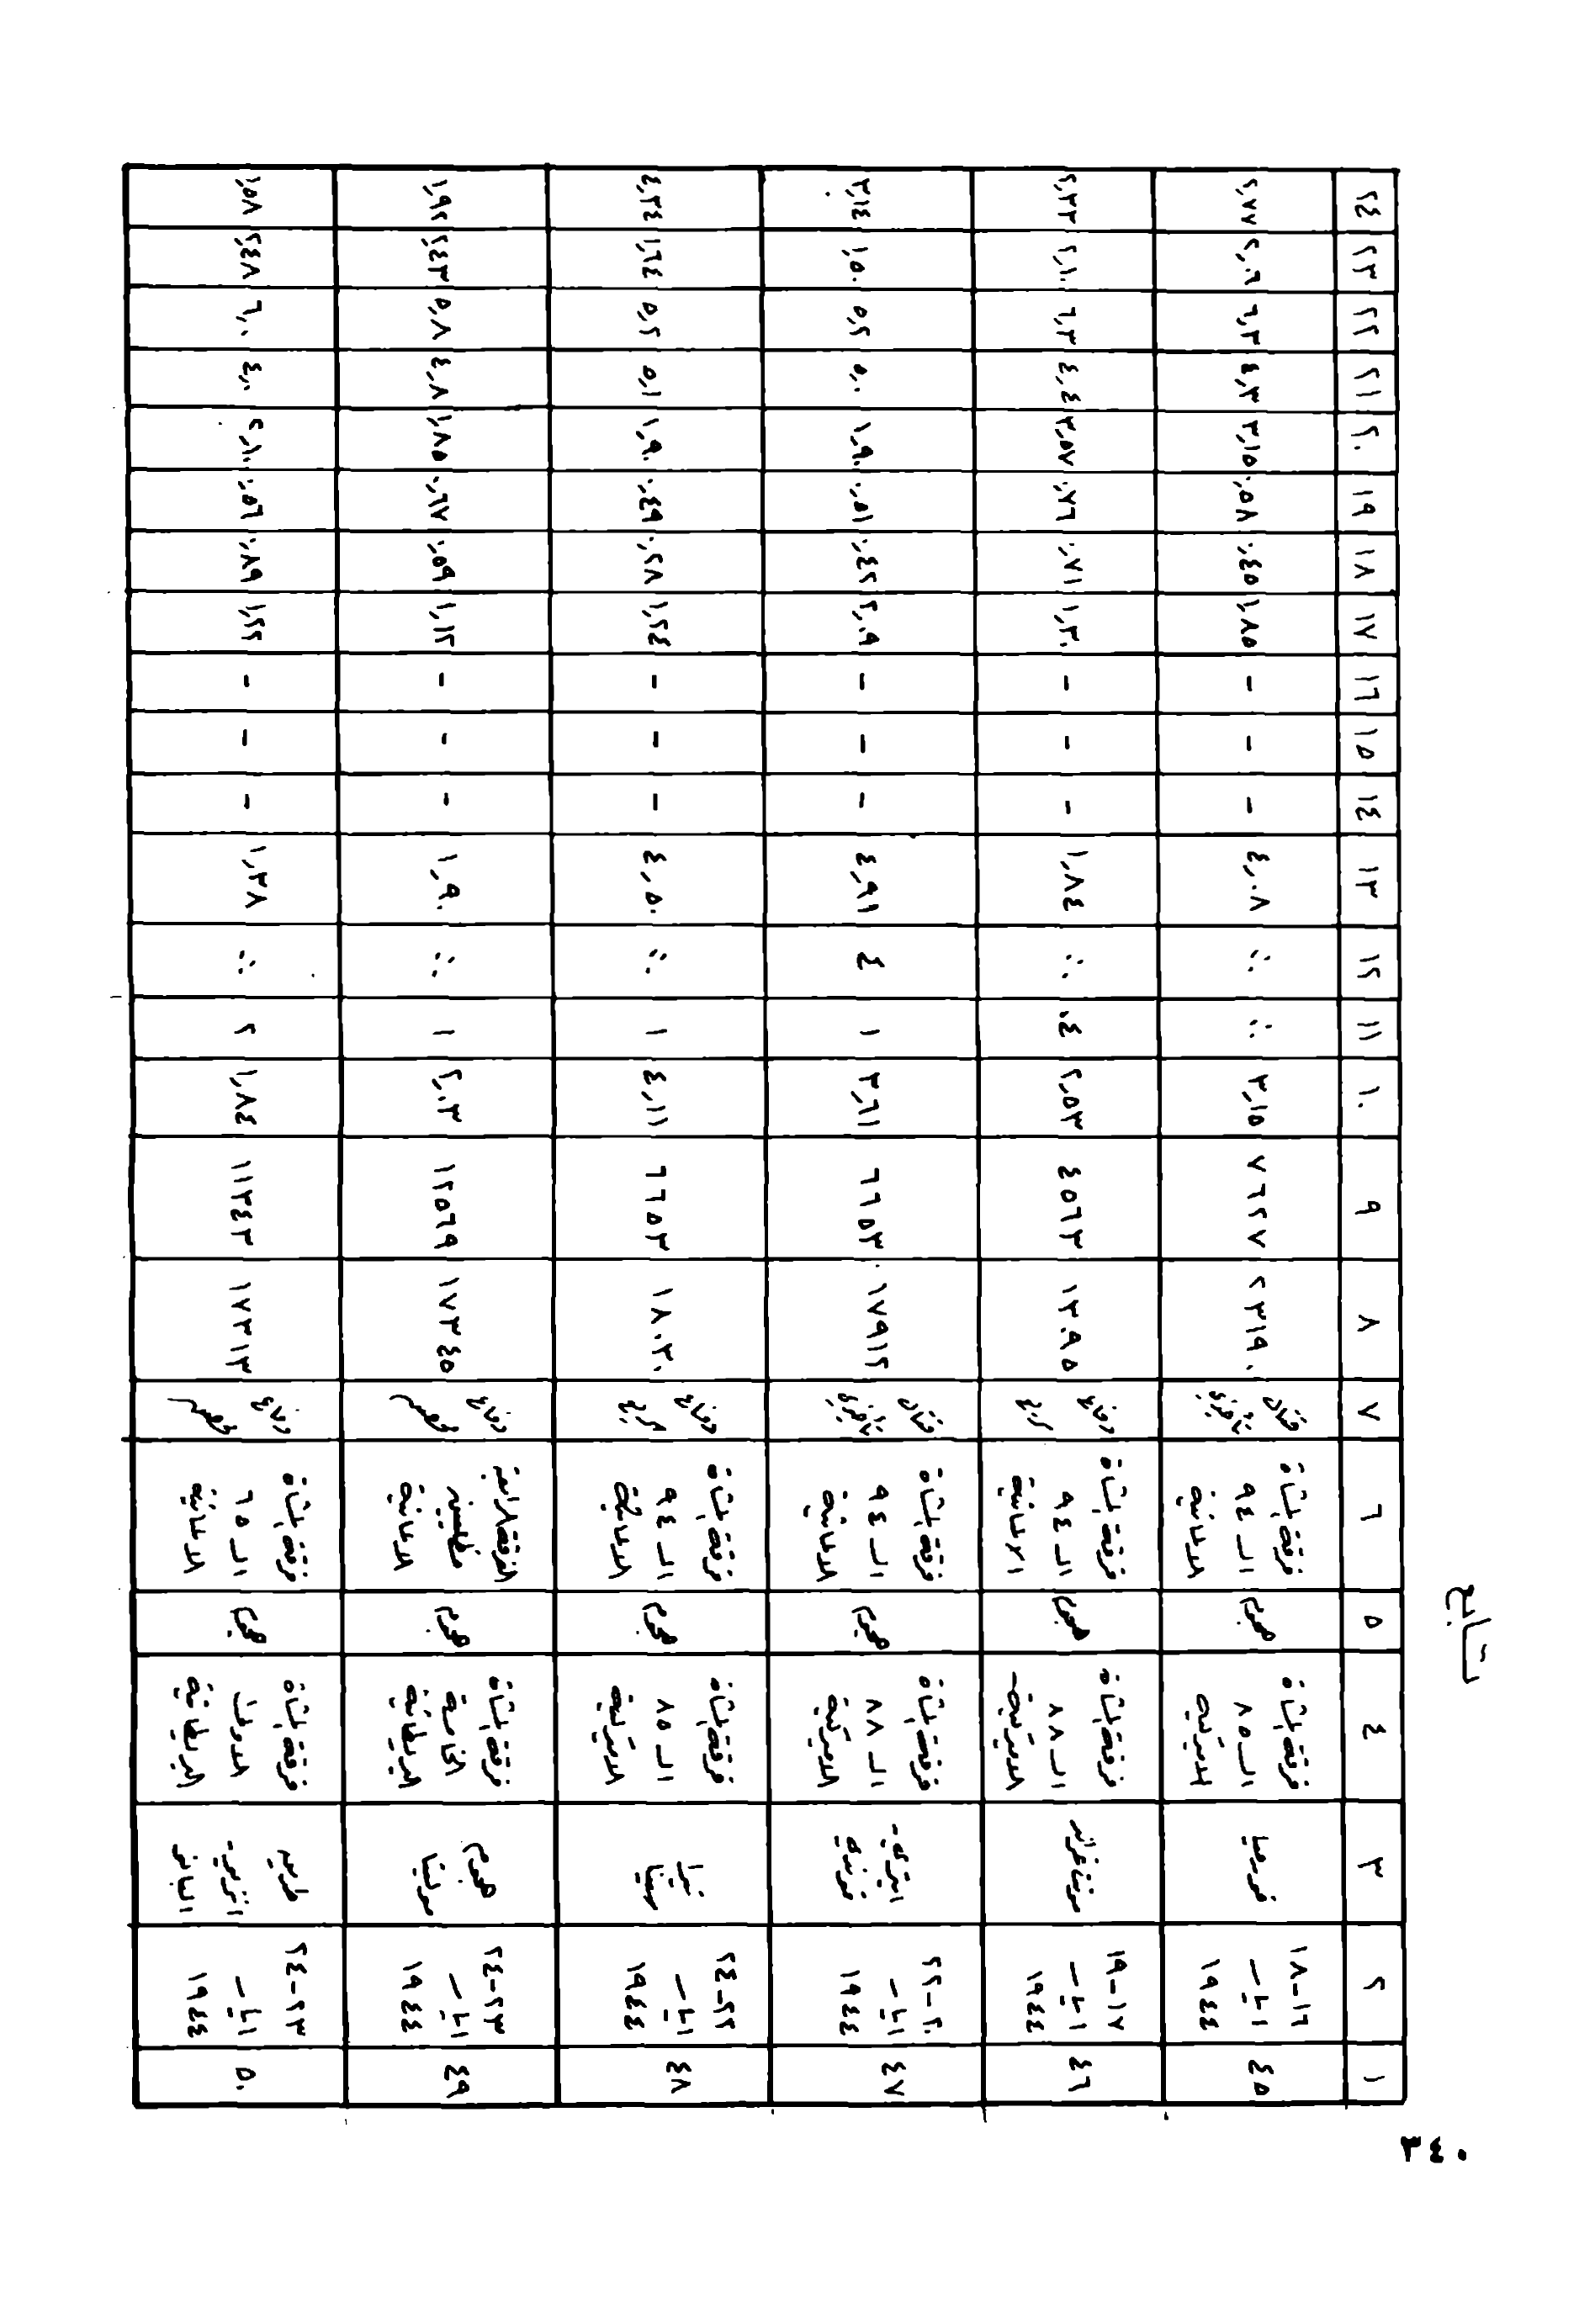 تابع
١ ٢ ٣ ٤ ٥ ٦ ٧ ٨ ٩ ١٠ ١١ ١٢ ١٣ ١٤ ١٥ ١٦ ١٧ ١٨ ١٩ ٢٠ ٢١ ٢٢ ٢٣ ٢٤
٤٥ ١٦-١٨ ايار ١٩٤٤ فورميا فرقة المشاة الـ ٨٥ الامريكية هجوم فرقة المشاة الـ ٩٤ الالمانية قتال تأخيري ٢٣١٩٠ ٧٦٢٧ ٣,١٥ ∴ ∴ ٤,٠٨ - - - ١,٨٥ ٠,٤٥ ٠,٥٨ ٣,١٥ ٤,٣ ٦,٣ ٢,٠٦ ٢,٧٧
٤٦ ١٧-١٩ ايار ١٩٤٤ مونت غراند فرقة المشاة الـ ٨٨ الامريكية هجوم فرقة المشاة الـ ٩٤ الالمانية دفاع سريع ١٣٠٩٥ ٤٥٦٣ ٢,٥٣ ٠٤ ∴ ١,٨٤ - - - ١,٣٠ ٠,٧١ ٠,٧٦ ٣,٥٧ ٤,٤ ٦,٣ ٢,١٠ ٢,٢٣
٤٧ ٢٠-٢٢ ايار ١٩٤٤ ايتري- فوندي فرقة المشاة الـ ٨٨ الامريكية هجوم فرقة المشاة الـ ٩٤ الالمانية قتال تأخيري ١٧٩١٢ ٦٦٥٣ ٣,٦١ ١ ٤ ٤,٩١ - - - ٢,٠٩ ٠,٤٢ ٠,٥١ ١,٩٠ ٥,٠ ٥,٢ ١,٥٠ ٣,١٤
٤٨ ٢٢-٢٤ ايار ١٩٤٤ تيرا سينا فرقة المشاة الـ ٨٥ الامريكية هجوم فرقة المشاة الـ ٩٤ الالمانية دفاع سريع ١٨٠٣٠ ٦٦٥٣ ٤,١١ ١ ∴ ٤,٥٠ - - - ١,٢٤ ٠,٢٨ ٠,٤٩ ١,٩٠ ٥,١ ٥,٢ ١,٦٤ ٤,٣٤
٤٩ ٢٣-٢٤ ايار ١٩٤٤ هجوم فرقة المشاة الخامسة البريطانية هجوم الفرقة الرابعة مظليين الالمانية دفاع ١٧٣٤٥ ١٢٥٦٩ ٢,٠٣ ١ ∴ ١,٩٠ - - - ١,١٢ ٠,٥٩ ٠,٦٧ ١,٨٥ ٤,٨ ٥,٨ ٢,٤٣ ١,٩٢
٥٠ ٢٣-٢٤ ايار ١٩٤٤ طريق انزيو- الباني فرقة المشاة الاولى البريطانية هجوم فرقة المشاة الـ ٦٥ الالمانية دفاع ١٧٣١٣ ١١٣٤٣ ١,٨٤ ٢ ∴ ١,٣٨ - - - ١,٢٢ ٠,٨٩ ٠,٥٦ ٢,١٠ ٤,٠ ٦,٠ ٢,٤٨ ١,٥٨
٣٤٠